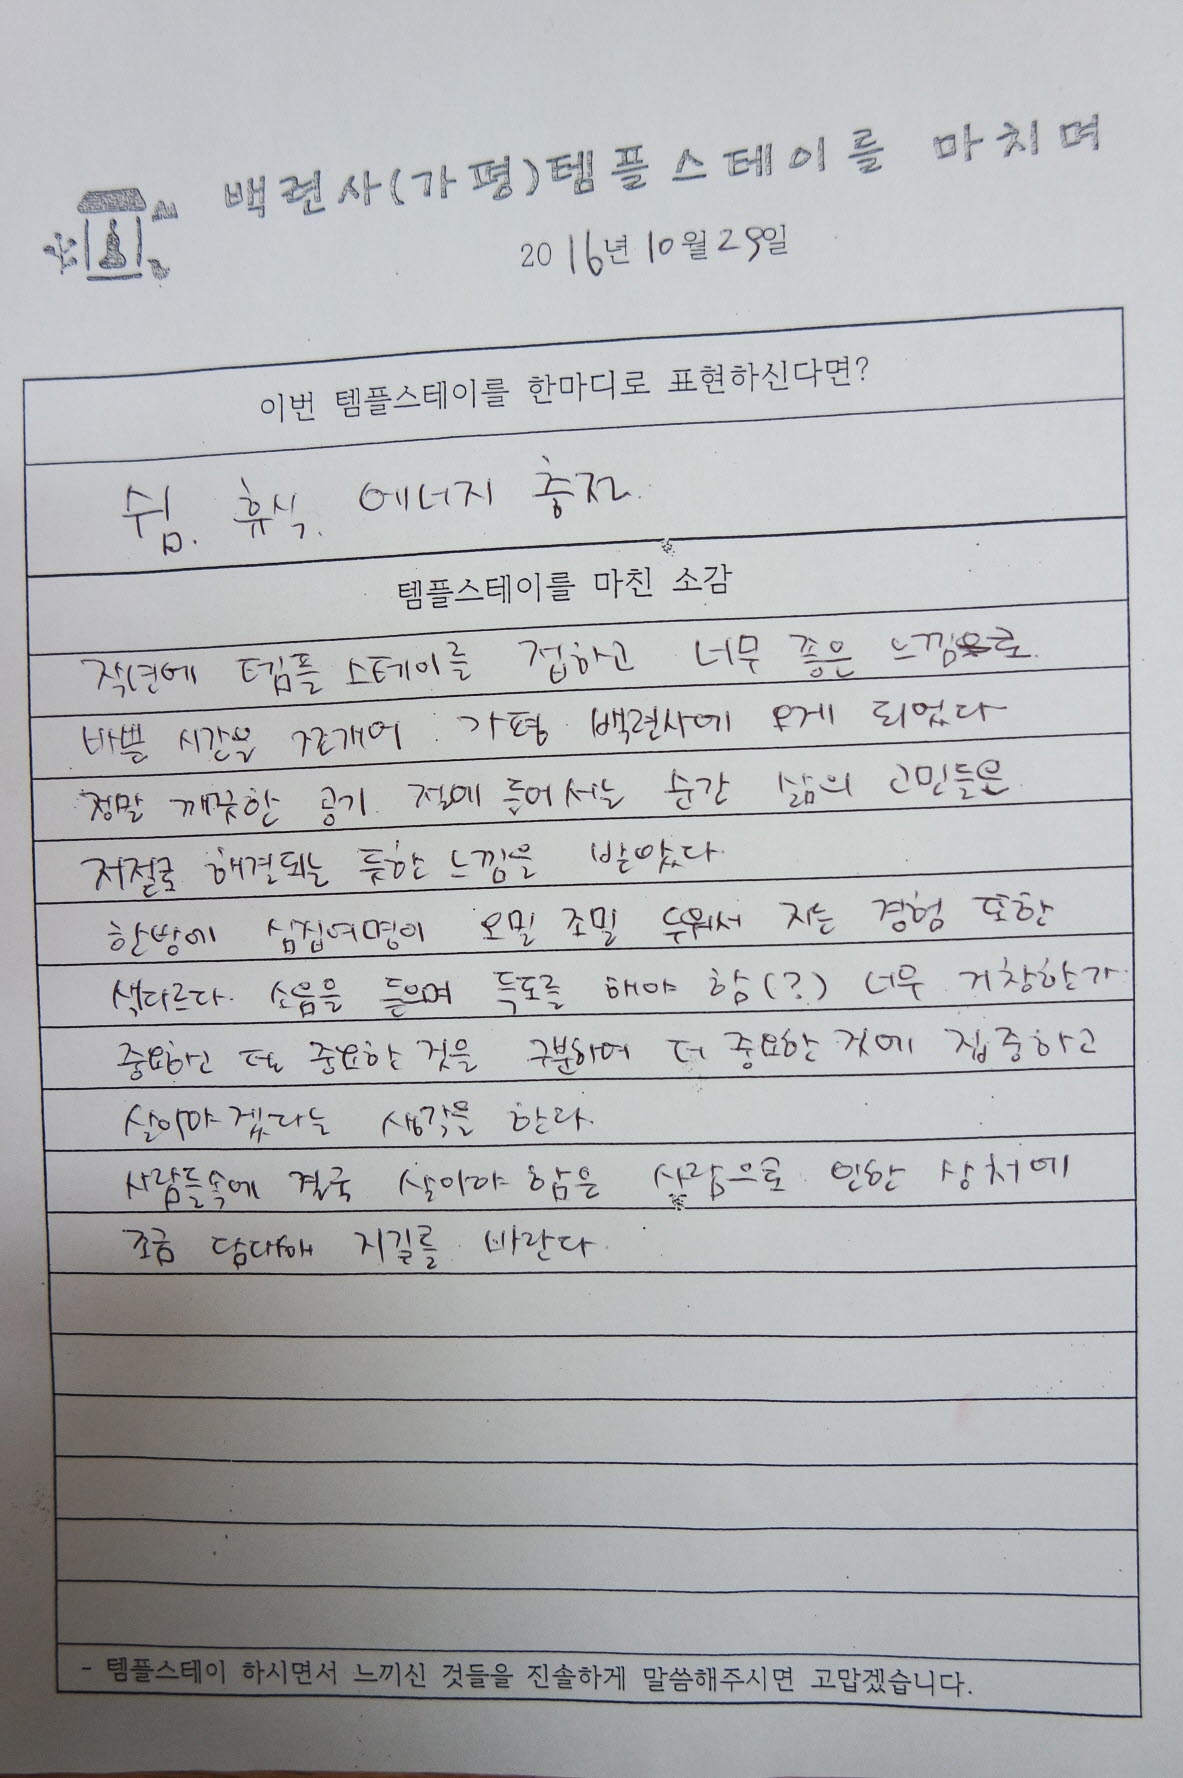 백련사(가평)템플스테이를 마치며
2016년 10월 29일
이번 템플스테이를 한마디로 표현하신다면?
쉼. 휴식. 에너지 충전.
템플스테이를 마친 소감
작년에 템플 스테이를 접하고 너무 좋은 느낌으로
바쁜 시간을 쪼개어 가평 백련사에 오게 되었다
정말 깨끗한 공기. 절에 들어서는 순간 삶의 고민들은
저절로 해결되는 듯한 느낌을 받았다.
한방에 십여명이 오밀 조밀 누워서 자는 경험 또한
색다르다. 소음을 들으며 득도를 해야 함(?) 너무 거창한가.
중요하고 더 중요한 것을 구분하여 더 중요한 것에 집중하고
살아야 겠다는 생각을 한다.
사람들속에 결국 살아야 함은 사람으로 인한 상처에
조금 담대해 지길를 바란다.
- 템플스테이 하시면서 느끼신 것들을 진솔하게 말씀해주시면 고맙겠습니다.